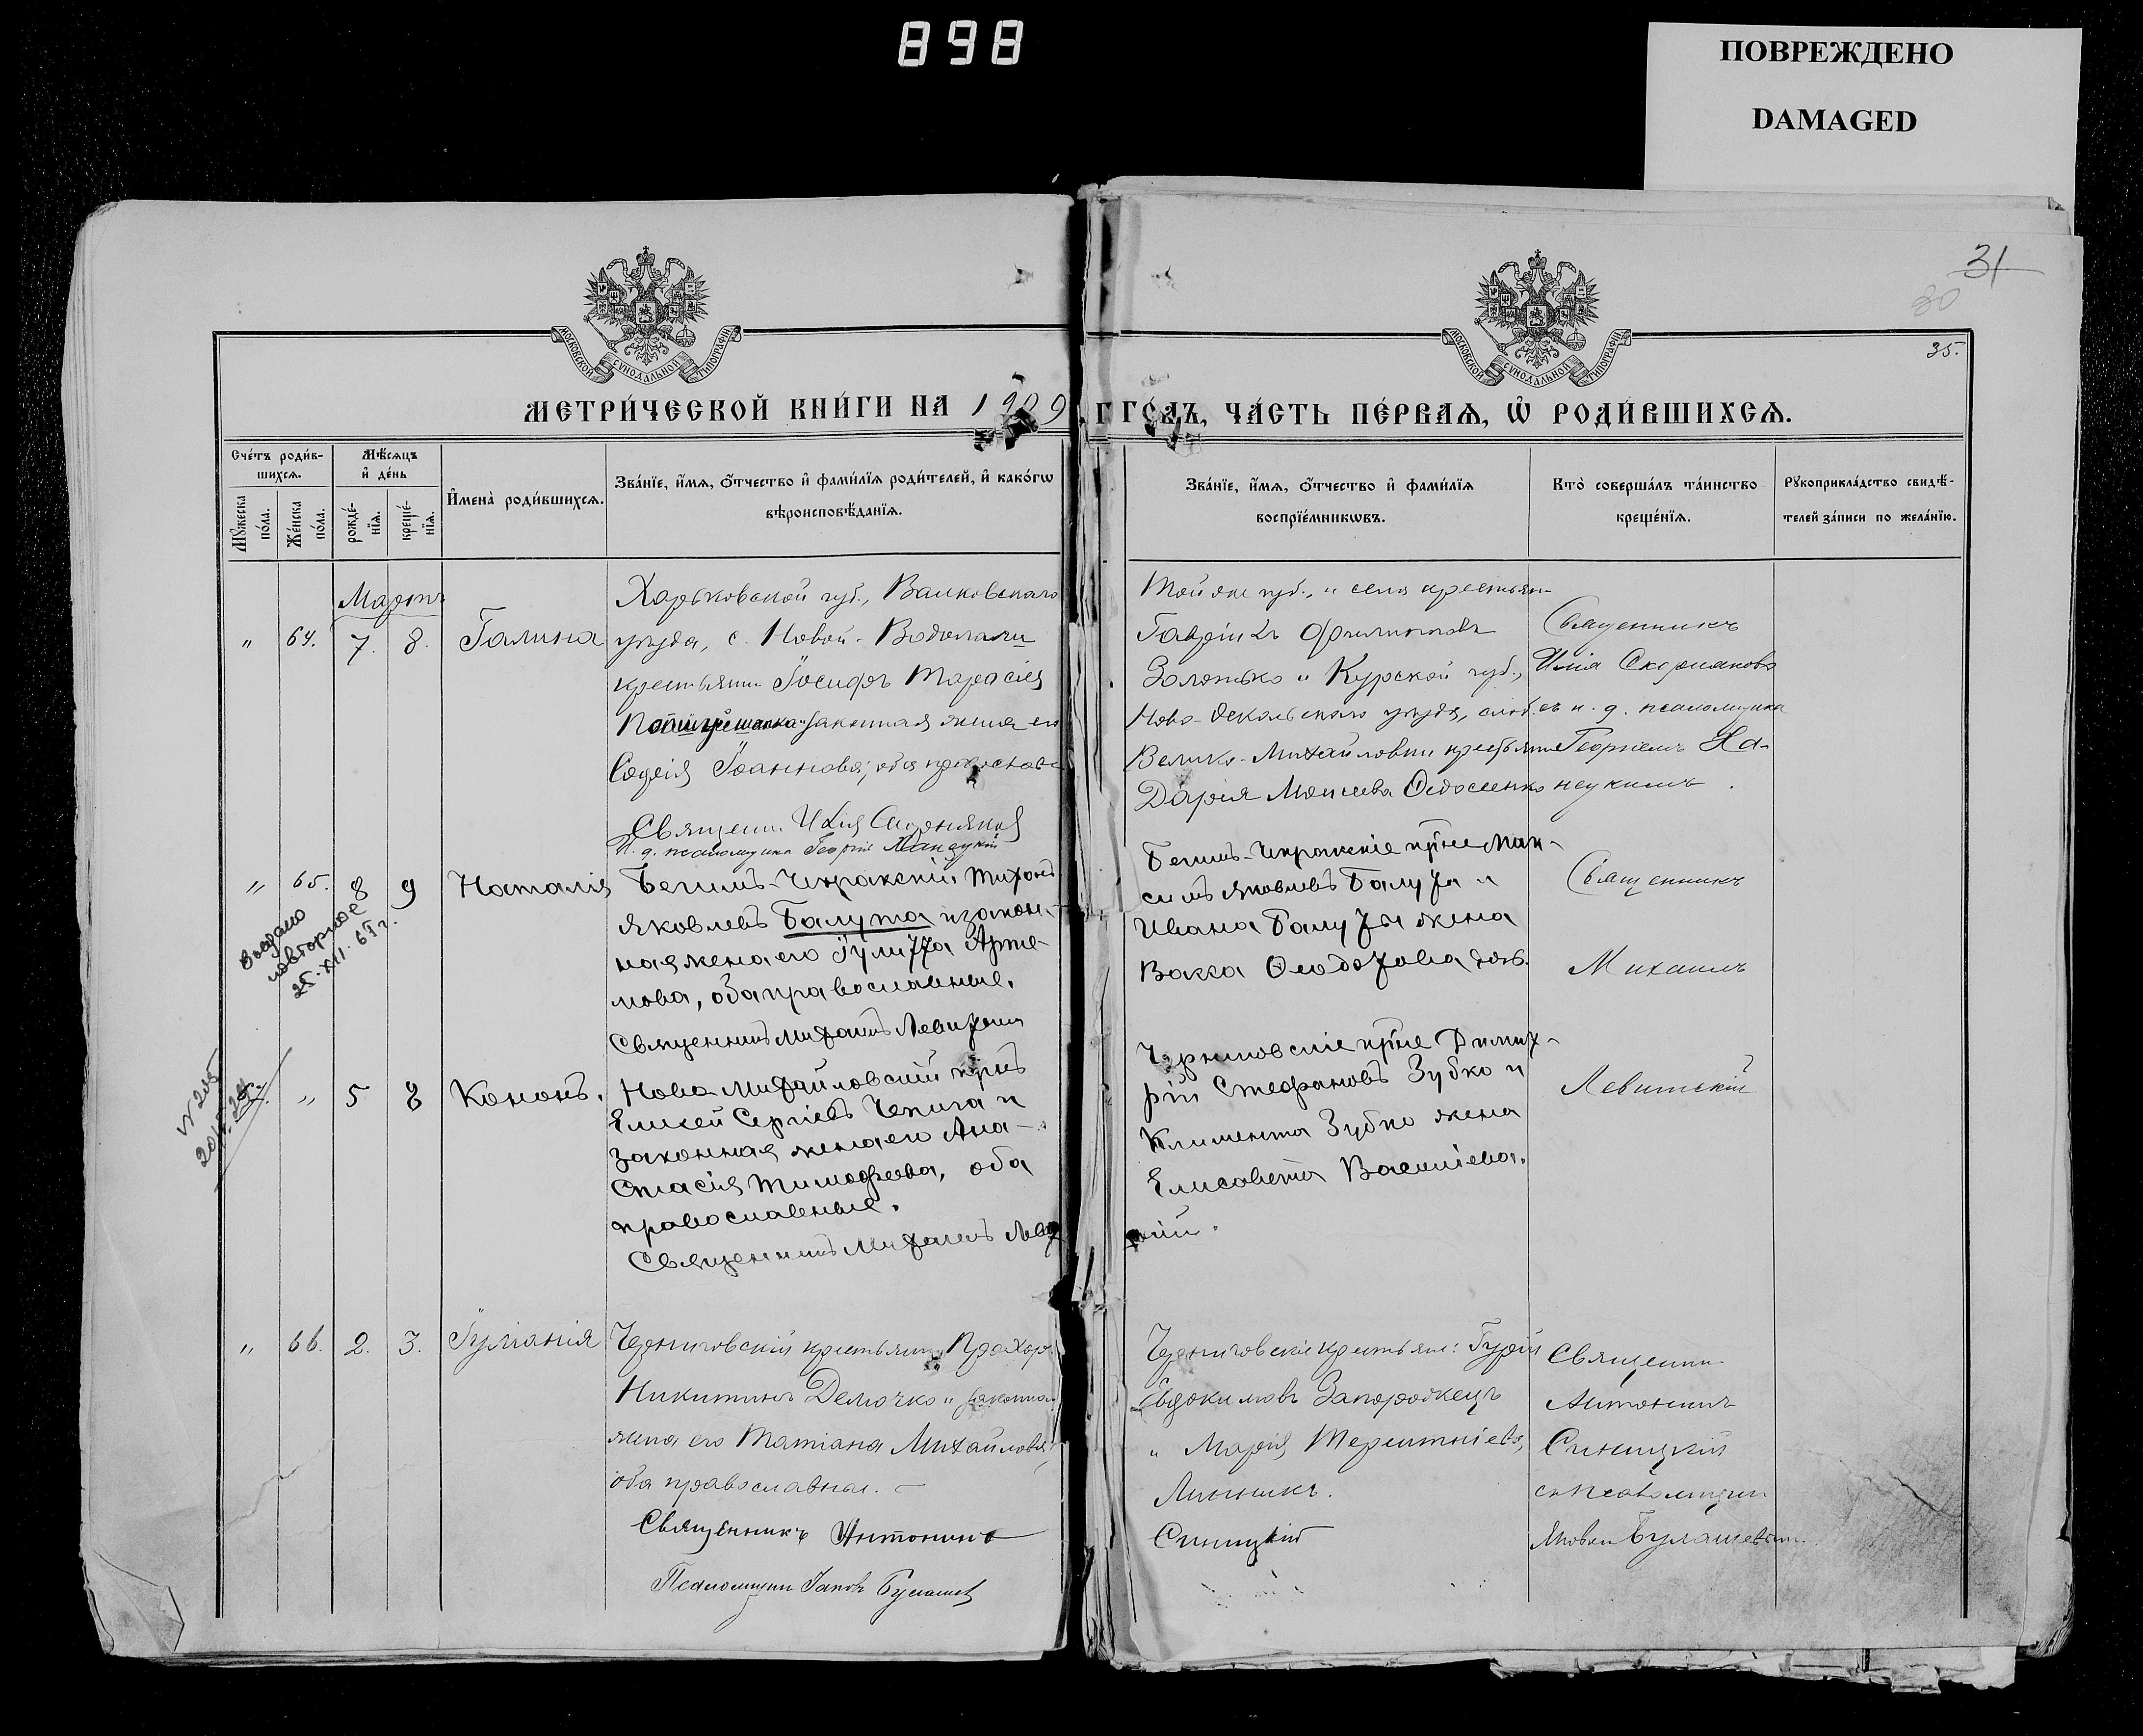 898
ПОВРЕЖДЕНО
DAMAGED
31
30
35.
МОСКОВСКОЙ СѴНОДАЛЬНОЙ ТИПОГРАФІИ
МОСКОВСКОЙ СѴНОДАЛЬНОЙ ТИПОГРАФІИ
МЕТРИ́ЧЕСКОЙ КНИ́ГИ НА 1909 Г
ГО́ДЪ, ЧА́СТЬ ПЕ́РВАѦ, Ѡ҆ РОДИ́ВШИХСѦ.
Сче́тъ роди́в-
шихсѧ.
Мꙋ́жеска по́ла.
Же́нска по́ла.
Мѣ́сѧцъ
и҆ де́нь
рожде́-
нїѧ.
креще́-
нїѧ.
И҆мена̀ роди́вшихсѧ.
Зва́нїе, и҆́мѧ, ѻ҆́тчество и҆ фами́лїѧ роди́телей, и҆ како́гѡ
вѣроисповѣ́данїѧ.
Зва́нїе, и҆́мѧ, ѻ҆́тчество и҆ фами́лїѧ
воспрїе́мникѡвъ.
Кто̀ соверша́лъ та́инство
креще́нїѧ.
Рꙋкоприкла́дство свидѣ́-
телей за́писи по жела́нїю.
Мартъ
" 64. 7. 8. Галина
Харьковской губ., Валковскаго
уѣзда, с. Новой-Водолаги
крестьянинъ Іосифъ Тарасіевъ
законная жена его
Софія Іоаннова, оба православн
Священ. Илія Скорняковъ
И. д. псаломщика Георгій
Той же губ., и села крестьян.
Гавріилъ Филиповъ
Золотько и Курской губ.,
Ново-Оскольскаго уѣзда, слоб.
Велико-Михайловки крестьянка
Дарія Моисеева Ѳедосеенко
Священникъ
Илія Скорняковъ
съ и. д. псаломщика
Георгіемъ
" 65. 8 9 Наталія
Выдано
повторное
25.XII.65 г.
Бегимъ-Чокракскій Тихонъ
Яковлевъ Балута и закон-
ная жена его Іулитта Арте-
мова, оба православные.
Священникъ Михаилъ Левитскій
Бегимъ-Чокракскіе кр̃не Мак-
симъ Яковлевъ Балута и
Ивана Балуты жена
Васса Ѳеодотова
Священникъ
Михаилъ
Левитскій
N 205
" 5 8 Кононъ.
Ново Михайловскій кр̃нъ
Елисей Сергіевъ Чепига и
законная жена его Ана-
стасія Тимофеева, оба
православные.
Священникъ Михаилъ Левит
скій.
Черниговскіе кр̃не Димит-
рій Стефановъ Зубко и
Климента Зубко жена
Елисавета Василіева.
" 66. 2. 3. Іуліанія
Черниговскій крестьянинъ Прохоръ
Никитинъ Демочко и законная
жена его Татіана Михайлова,
оба православные.
Священникъ Антонинъ
Синицкій
Псаломщикъ Іаковъ Булашевъ
Черниговскіе крестьяне: Гурій
Евдокимовъ Запорожецъ
и Марія Терентіева,
Линникъ.
Священник
Антонинъ
Синицкій
съ псаломщик
Яковомъ Булашевым